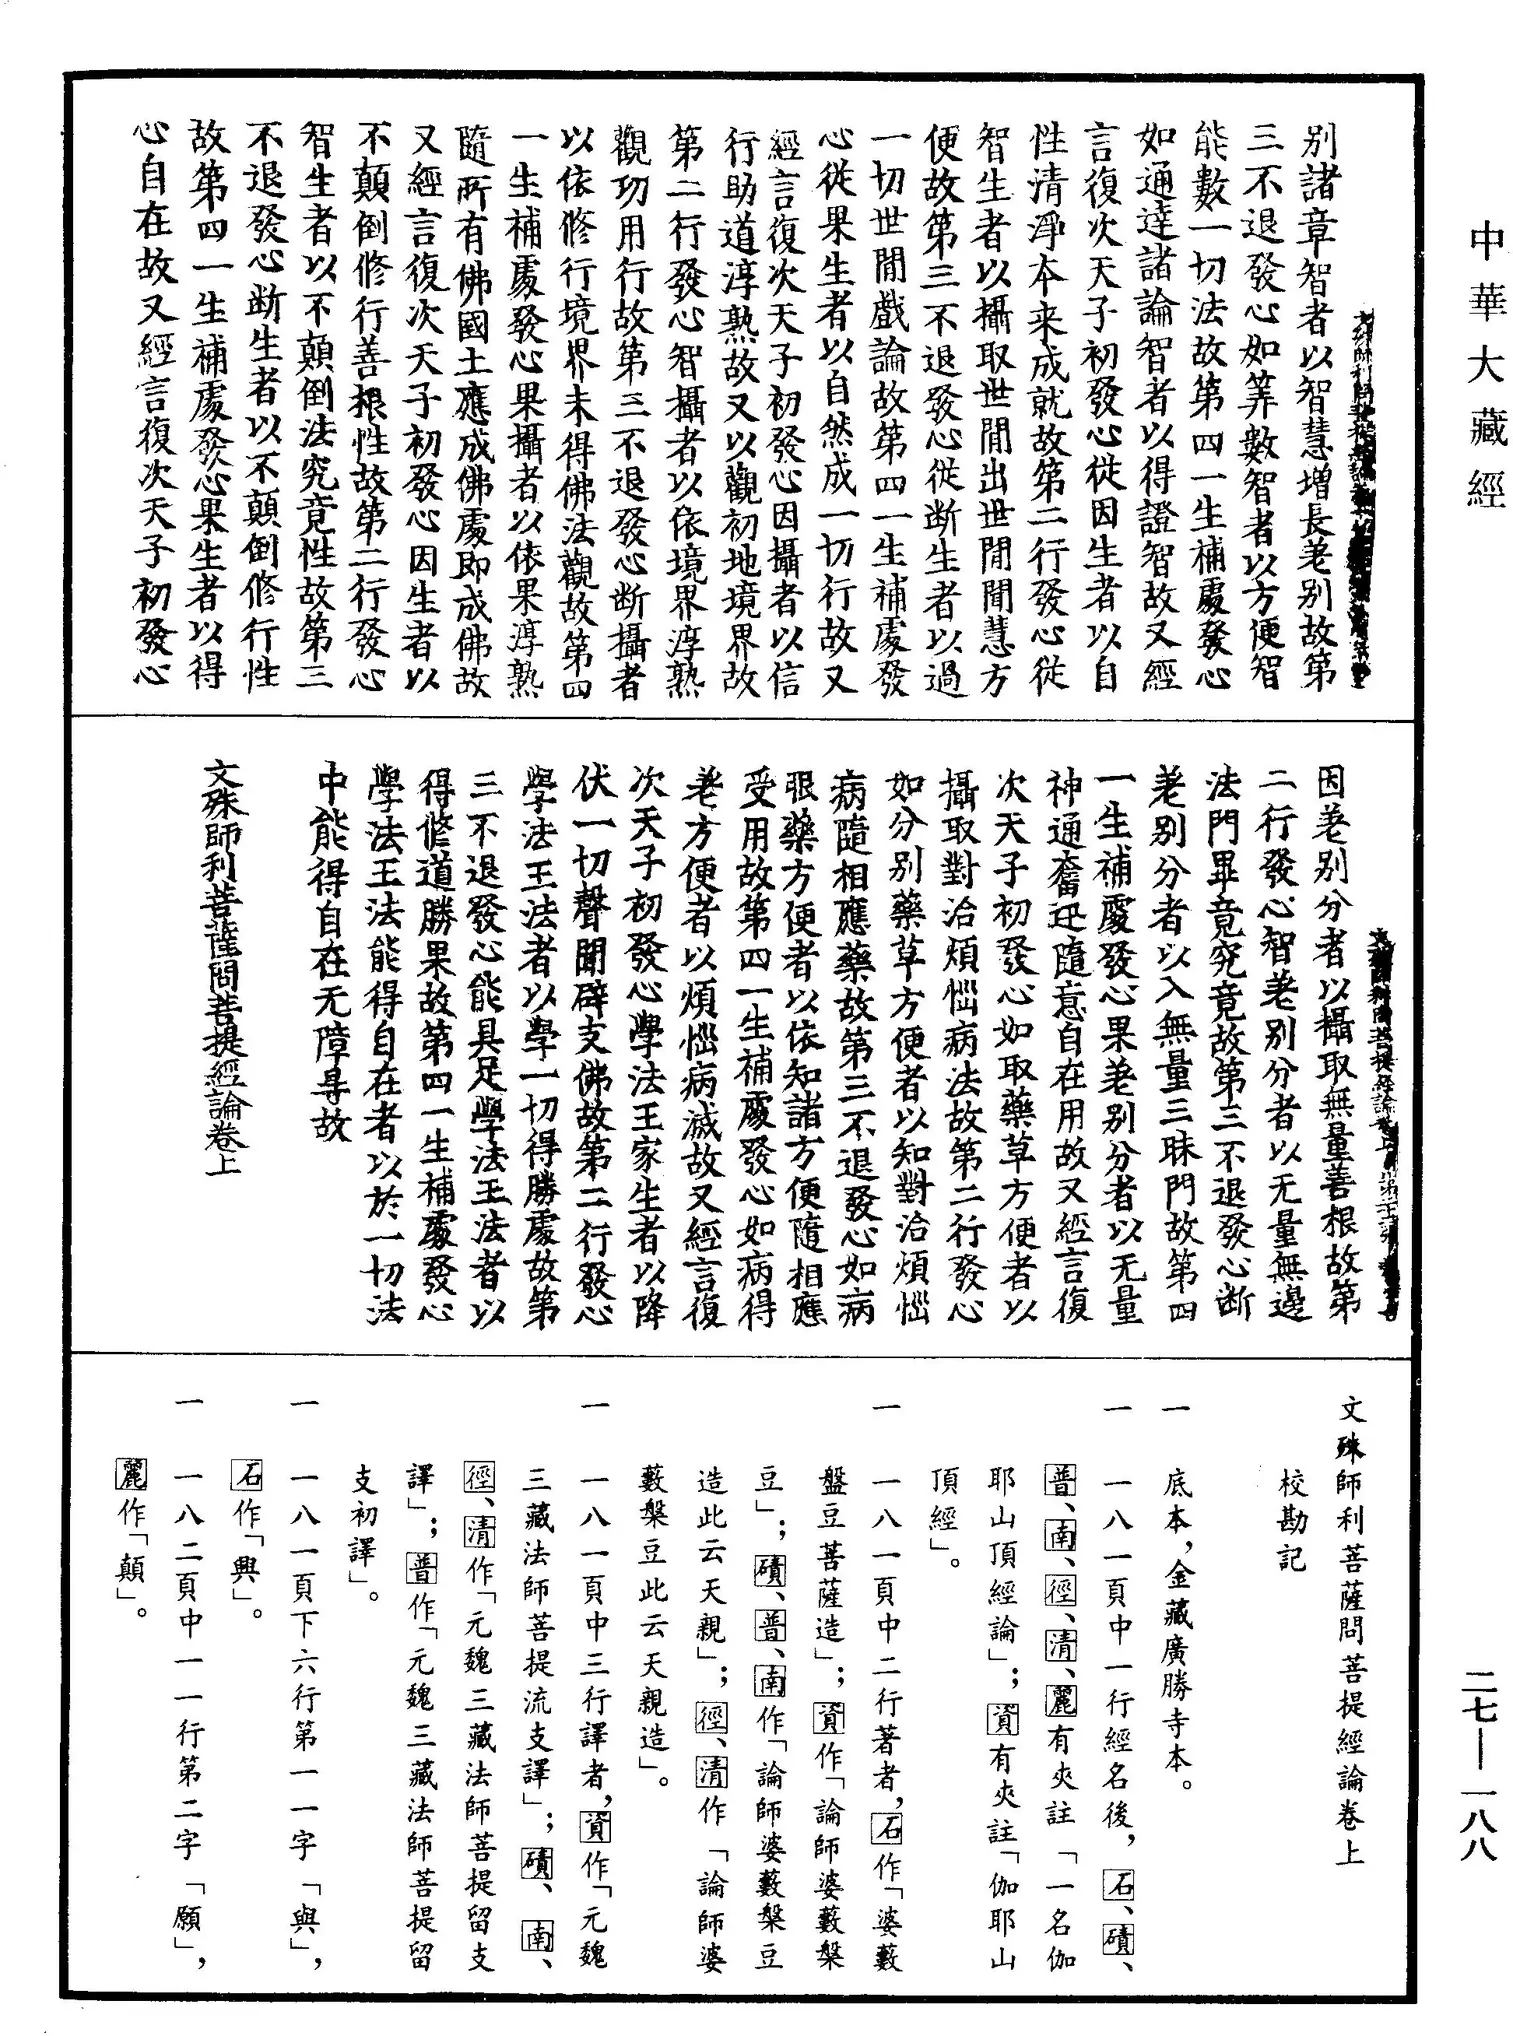 中華大藏經
別諸章智者以智慧增長差別故第
三不退發心如筭數智者以方便智
能數一切法故第四一生補處發心
如通達諸論智者以得證智故又經
言復次天子初發心從因生者以自
性清淨本来成就故第二行發心從
智生者以攝取世間出世間聞慧方
便故第三不退發心從斷生者以過
一切世間戲論故第四一生補處發
心從果生者以自然成一切行故又
經言復次天子初發心因攝者以信
行助道淳熟故又以觀初地境界故
第二行發心智攝者以依境界淳熟
觀功用行故第三不退發心断攝者
以依修行境界未得佛法觀故第四
一生補處發心果攝者以依果淳熟
隨所有佛國土應成佛處即成佛故
又經言復次天子初發心因生者以
不顛倒修行善根性故第二行發心
智生者以不顛倒法究竟性故第三
不退發心斷生者以不顛倒修行性
故第四一生補處發心果生者以得
心自在故又經言復次天子初發心
因差別分者以攝取無量善根故第
二行發心智差別分者以无量無邊
法門畢竟究竟故第三不退發心断
差別分者以入無量三昧門故第四
一生補處發心果差別分者以无量
神通奮迅隨意自在用故又經言復
次天子初發心如取藥草方便者以
攝取對治煩惱病法故第二行發心
如分別藥草方便者以知對治煩惱
病隨相應藥故第三不退發心如病
服藥方便者以依知諸方便隨相應
受用故第四一生補處發心如病得
差方便者以煩惱病滅故又經言復
次天子初發心學法王家生者以降
伏一切聲聞辟支佛故第二行發心
學法王法者以學一切得勝處故第
三不退發心能具足學法王法者以
得修道勝果故第四一生補處發心
學法王法能得自在者以於一切法
中能得自在无障㝵故
文殊師利菩薩問菩提經論卷上
文殊師利菩薩問菩提經論卷上
校勘記
一 底本，金藏廣勝寺本。
一 一八一頁中一行經名後，石、磧、
普、南、徑、清、麗有夾註「一名伽
耶山頂經論」；資有夾註「伽耶山
頂經」。
一 一八一頁中二行著者，石作「婆藪
盤豆菩薩造」；資作「論師婆藪槃
豆」；磧、普、南作「論師婆藪槃豆
造此云天親」；徑、清作「論師婆
藪槃豆此云天親造」。
一 一八一頁中三行譯者，資作「元魏
三藏法師菩提流支譯」；磧、南、
徑、清作「元魏三藏法師菩提留支
譯」；普作「元魏三藏法師菩提留
支初譯」。
一 一八一頁下六行第一一字「與」，
石作「興」。
一 一八二頁中一一行第二字「願」，
麗作「顛」。
二七—一八八